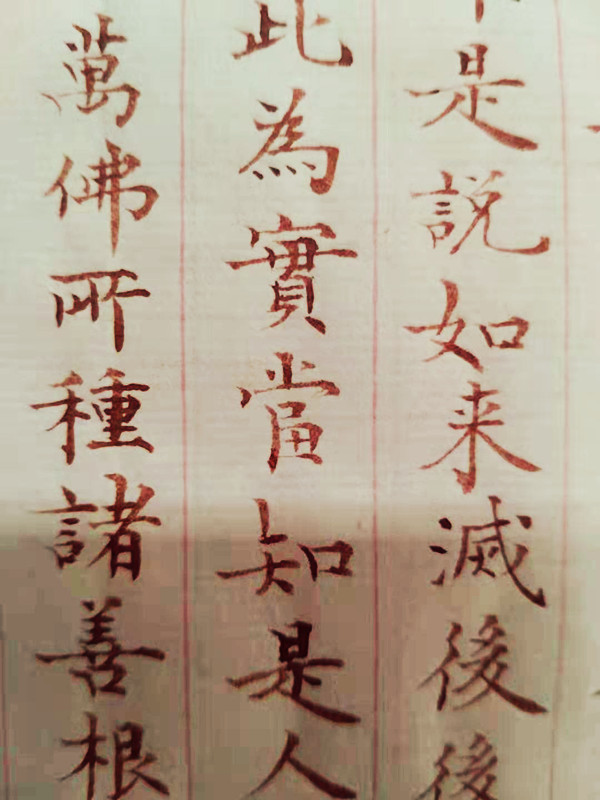 是説如来滅後後
此為實當知是人
萬佛所種諸善根